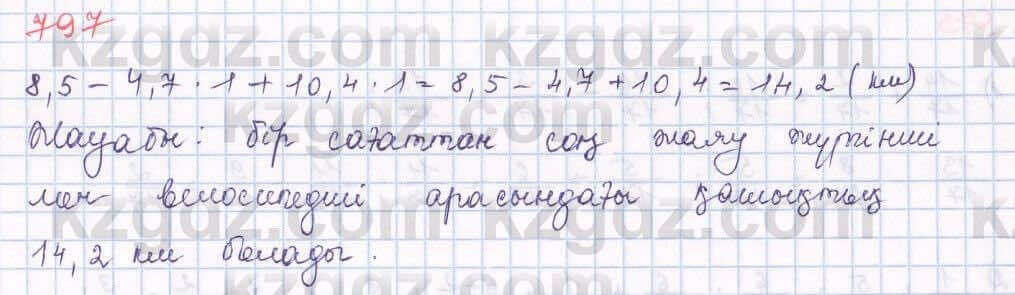 797
kzgdz.com
8,5 - 4,7 · 1 + 10,4 · 1 = 8,5 - 4,7 + 10,4 = 14,2 (км)
Жауабы: бір сағаттан соң жаяу жүргінші
мен велосипедші арасындағы қашықтық
14,2 км болады.